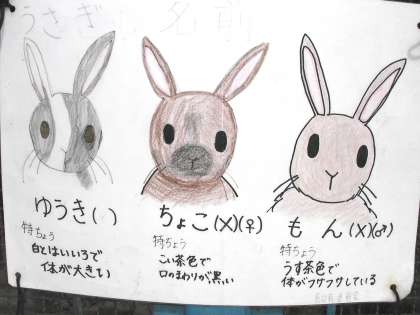 うさぎの名前
ゆうき( )
特ちょう
白とはいいろで
体が大きい
ちょこ(X)(♀)
特ちょう
こい茶色で
口のまわりが黒い
もん(X)(♂)
特ちょう
うす茶色で
体がフサフサしている